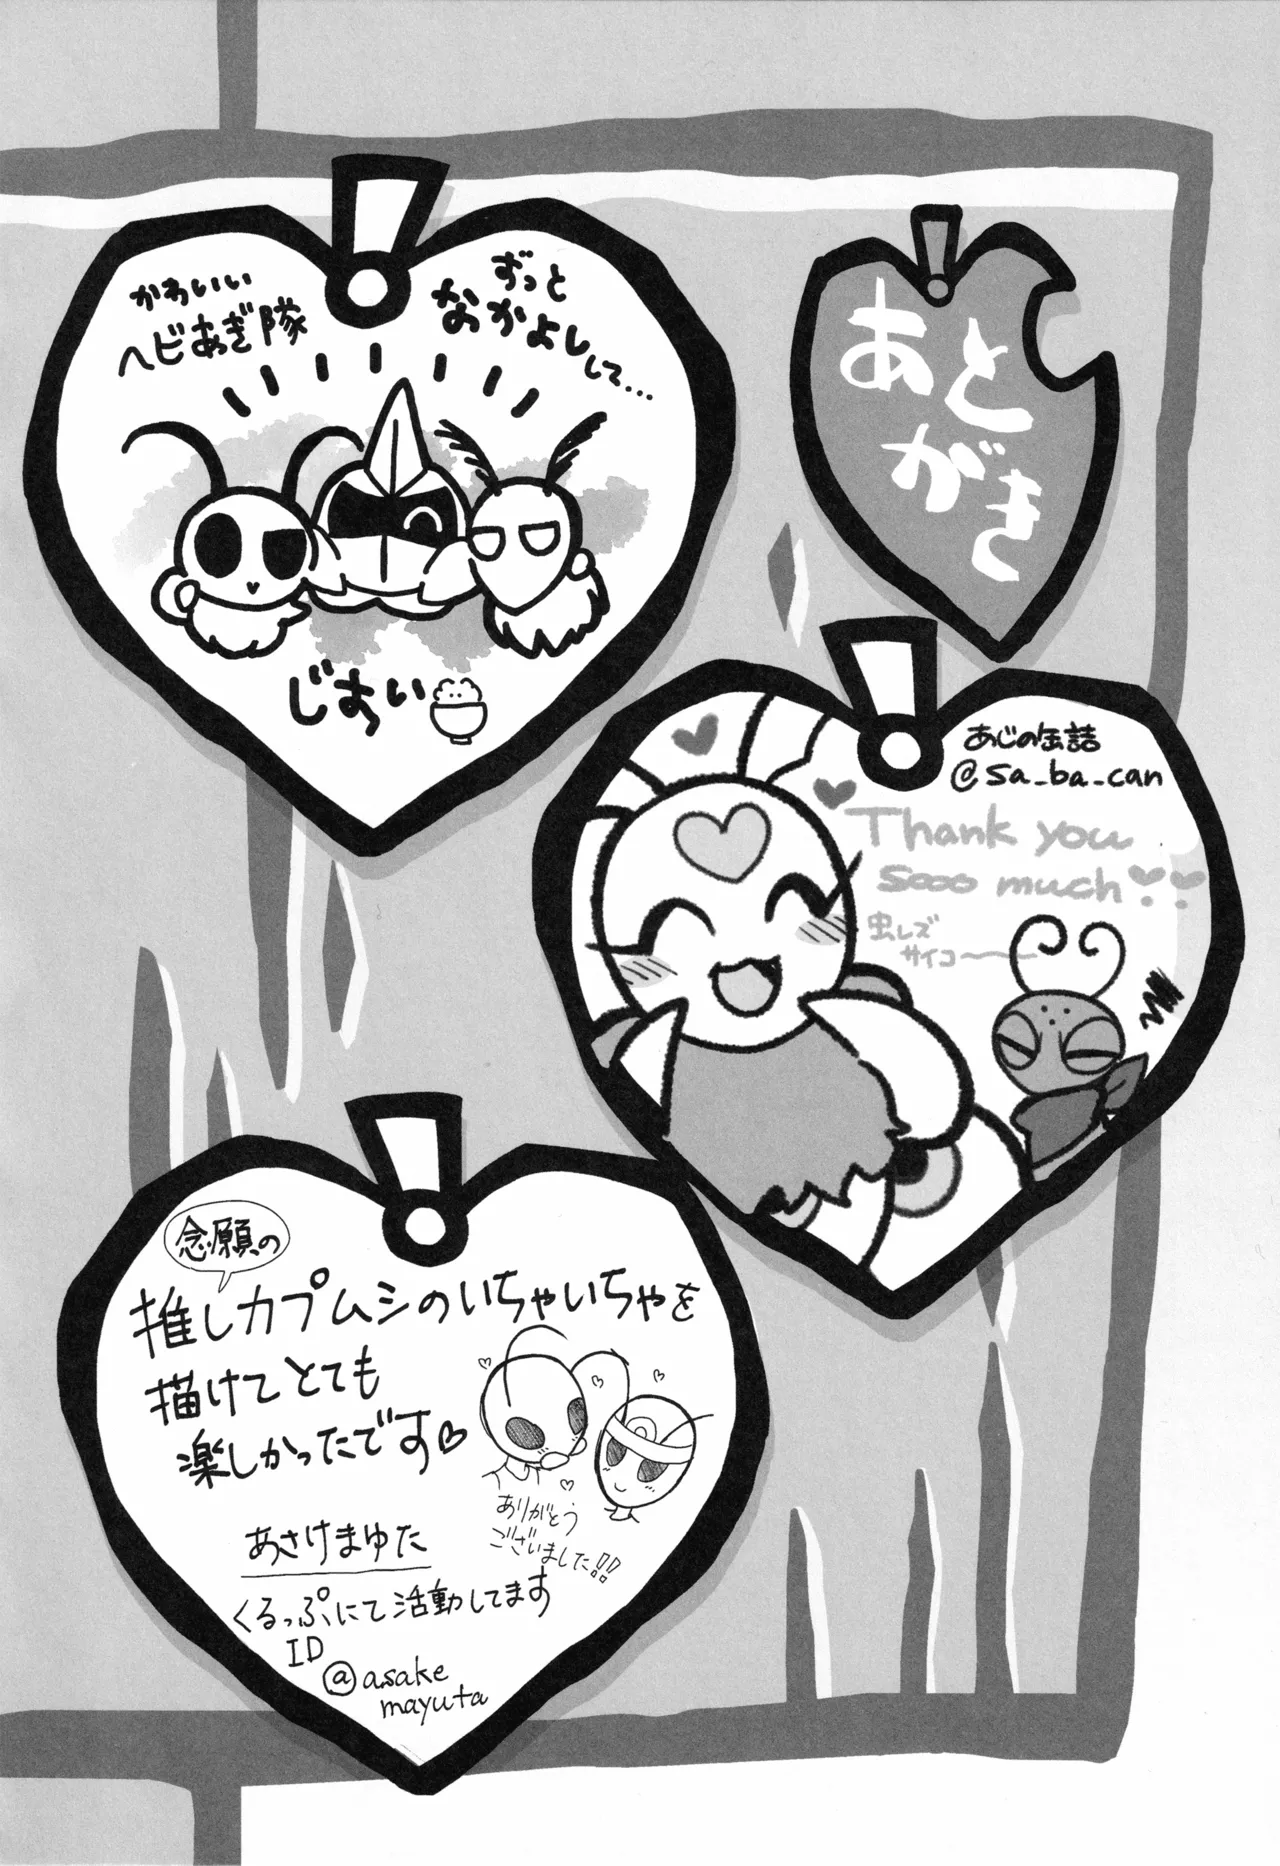 あとがき
かわいい
ヘビあぎ隊
ずっと
なかよしして…
じおい
あじの缶詰
@sa_ba_can
Thank you
sooo much
虫レズ
サイコ〜〜
念願の
推しカプムシのいちゃいちゃを
描けてとても
楽しかったです♡
ありがとう
ございました!!
あさけまゆた
くるっぷにて活動してます
ID
@asake
mayuta